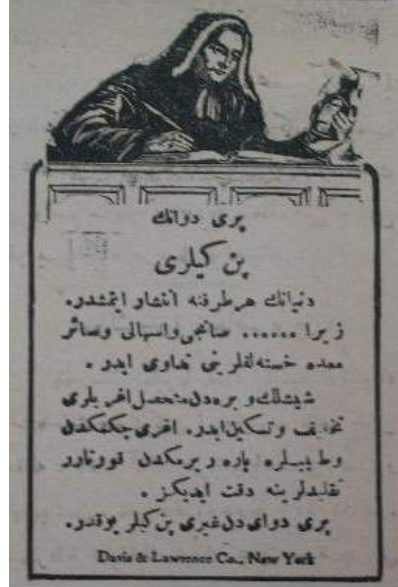 پری دوانك
پن كیلری
دنیانك هر طرفنه انتشار ایتمشدر.
زیرا ...... صانجی واسهالی وسائر
معده خسته‌لقلرینی تداوی ایدر .
شیشلك و بره‌دن متحصل اغریلری
تخفیف وتسكین ایدر. اغری چكمكدن
وطبیبلره پاره ویرمكدن قورتارر
تقلیدلرینه دقت ایدیكز .
پری دوای‌دن غیری پن كیلر یوقدر.
Davis & Lawrence Co., New York